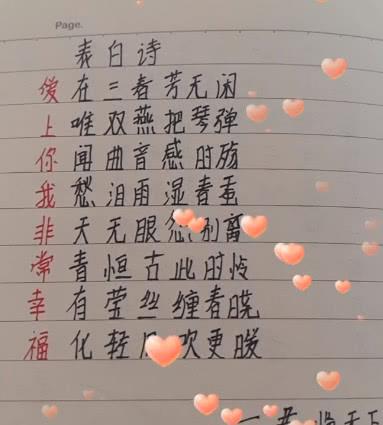 Page.
表白诗
爱在三春芳无闲
上唯双燕把琴弹
你闻曲音感时殇
我愁泪雨湿春蚕
非天无眼怨别离
常青恒古此时怜
幸有莹丝缠春晓
福化轻风吹更暖